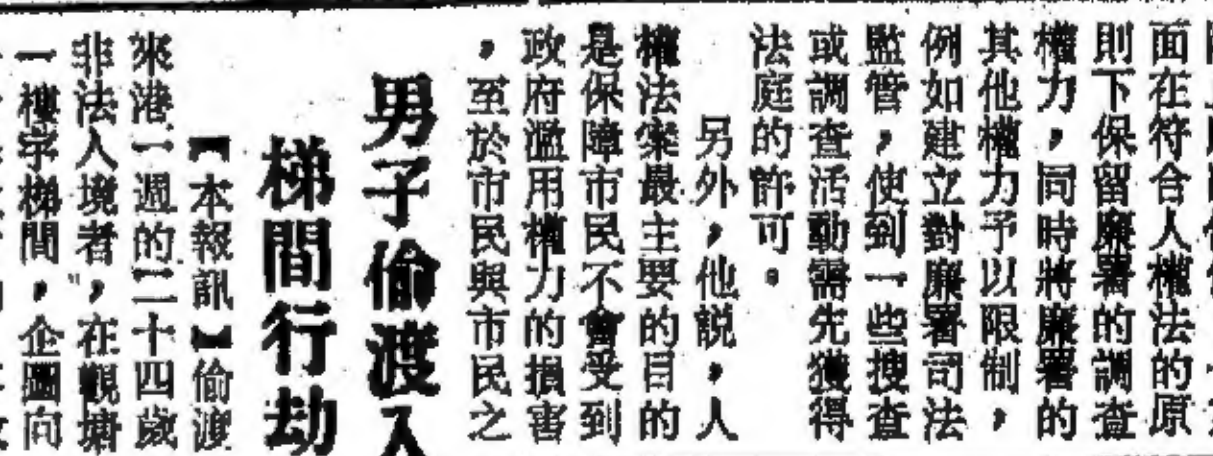 面在符合人權法的原
則下保留廉署的調查
權力，同時將廉署的
其他權力予以限制，
例如建立對廉署司法
監管，使到一些搜查
或調查活動需先獲得
法庭的許可。
另外，他説，人
權法案最主要的目的
是保障市民不會受到
政府濫用權力的損害
，至於市民與市民之
男子偷渡入
梯間行劫
【本報訊】偷渡
來港一週的二十四歲
非法入境者，在觀塘
一樓宇梯間，企圖向